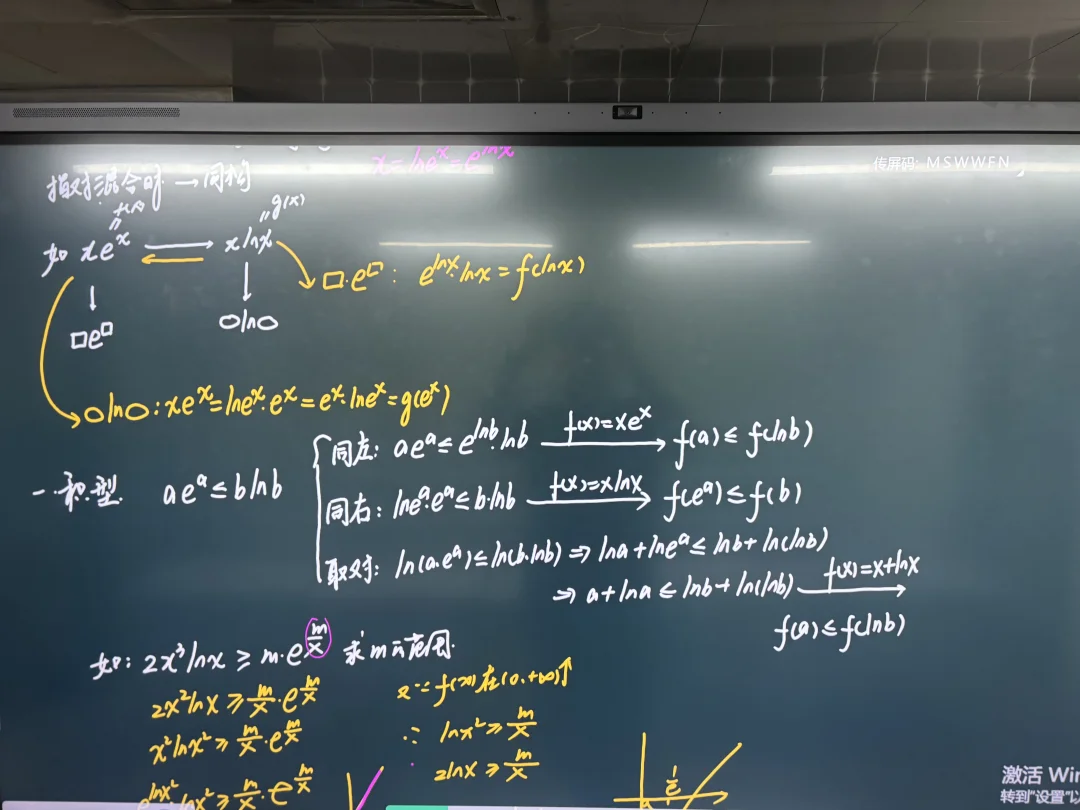 x=lne^x=e^{lnx}
传屏码: MSWWEN
指对混合时 → 同构
f(x) g(x)
如 xe^x ⇄ xlnx
□e^□ ○ln○
□·e^□: e^{lnx}·lnx=f(lnx)
○ln○: xe^x=lne^x·e^x=e^x·lne^x=g(e^x)
一.积型. ae^a≤blnb
同左: ae^a≤e^{lnb}·lnb f(x)=xe^x → f(a)≤f(lnb)
同右: lne^a·e^a≤b·lnb f(x)=xlnx → f(e^a)≤f(b)
取对: ln(a·e^a)≤ln(b·lnb) ⇒ lna+lne^a≤lnb+ln(lnb)
⇒ a+lna≤lnb+ln(lnb) f(x)=x+lnx →
f(a)≤f(lnb)
如: 2x³lnx≥m·e^{m/x} 求m的范围.
2x²lnx≥m/x·e^{m/x}
x²lnx²≥m/x·e^{m/x}
e^{lnx²}·lnx²≥m/x·e^{m/x}
又∵f(x)在(0,+∞)↑
∴ lnx²≥m/x
2lnx≥m/x
1/e
激活 Win
转到"设置"以